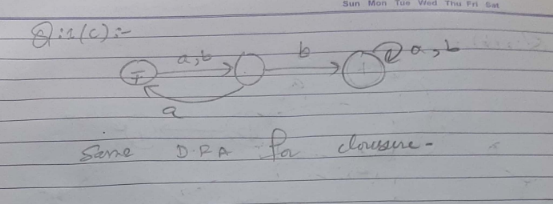 Sun Mon Tue Wed Thu Fri Sat
Q:1(c):-
a,b b a,b
∓ +
a
Same D.F.A for clousure-